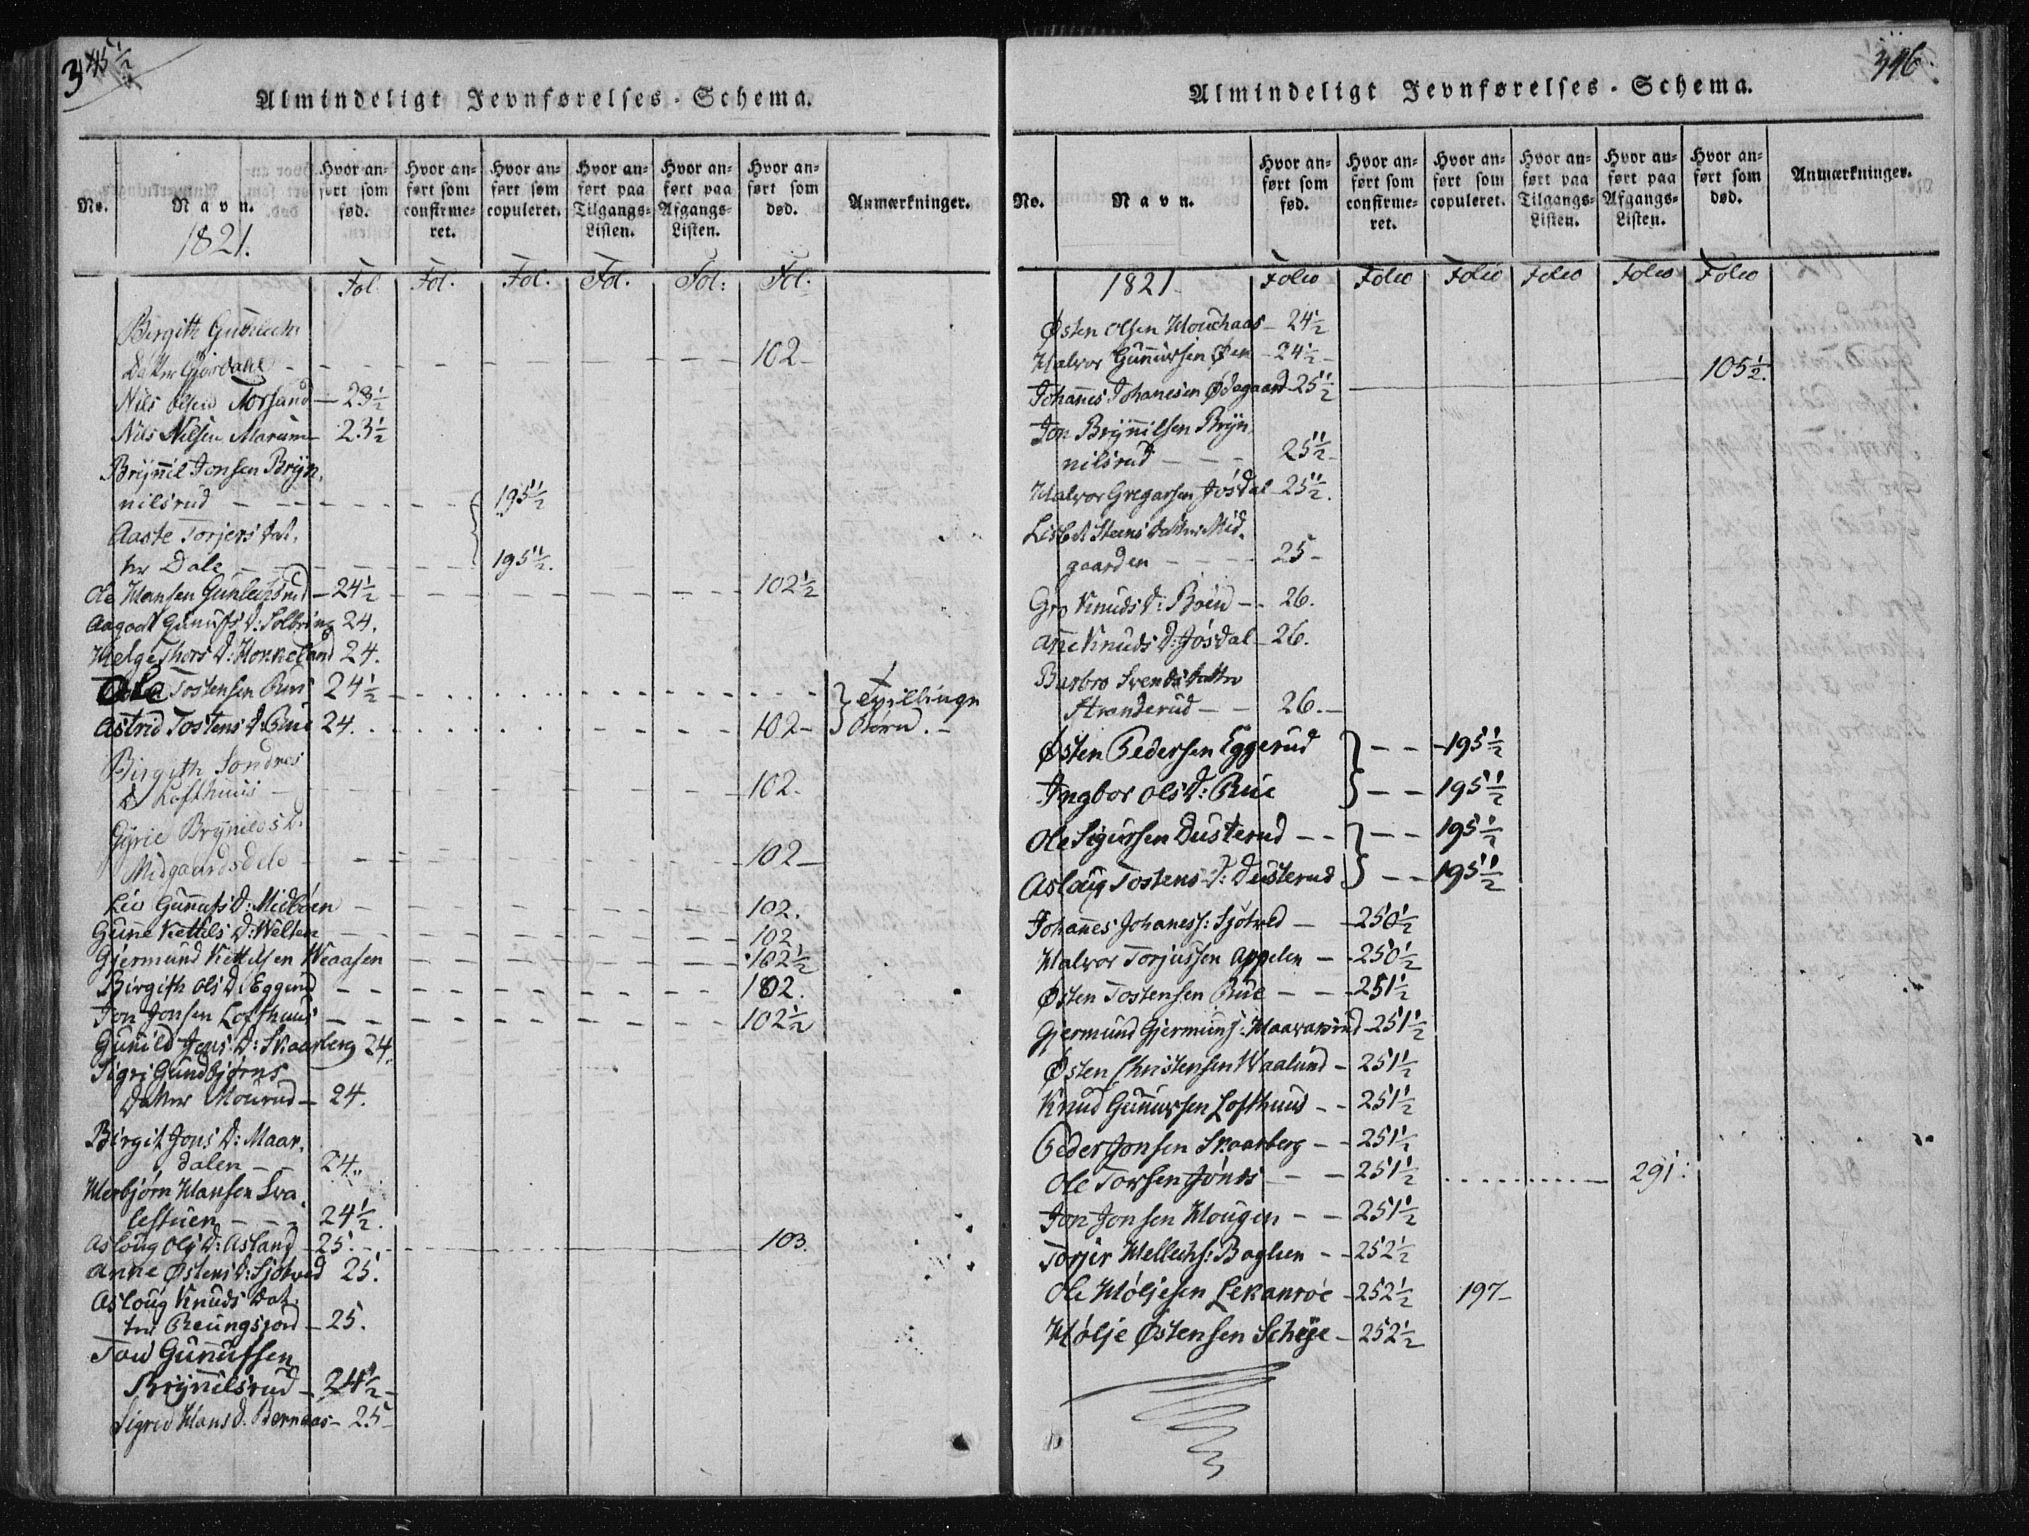 345½
Almindeligt Jevnførelses-Schema.
No.
Navn.
Hvor anført som fød.
Hvor anført som confirmeret.
Hvor anført som copuleret.
Hvor anført paa Tilgangs-Listen.
Hvor anført paa Afgangs-Listen.
Hvor anført som død.
Anmærkninger.
1821.
Fol. Fol. Fol. Fol. Fol: Fol.
Birgith
Datter 102
Nils Olsen Torsand 23½
Nils Nilsen Marum 23½
Brÿnnil Jonsen Brÿn-
nilsrud 195½
Aaste Torjers dat-
ter Dale 195½.
Ole Hansen Gunleksrud 24½ 102½
Aagodt Gunufs D: Solbring 24.
Helge Thors D: Honneland 24.
Ole Tostensen Rui 24½ } Tvillinge
Astrid Tostens D: Rui 24. 102 } Børn.
Birgith Sondres
D Lofthuus 102.
Gÿrie Brÿnilds d.
Midgaardsdele 102
Liv Gunufs D: Midbøen 102.
Gune Kettils D: Welten 102
Gjermund Kettilsen Weaasen 102½
Birgith Ols D: Eggerud 102.
Jon Jonsen Lofthuus 102½
Gunild Jens D: Skaarberg 24.
Sigri Gundbjørns
Datter Mourud 24.
Birgit Jons D: Maar-
dalen 24.
Herbjørn Hansen Sva-
lestuen 24½.
Asloug Ols D: Asland 25. 103.
Anne Østens D: Sjotved 25.
Asloug Knuds Dat-
ter Reungsjord 25.
Tov Gunufsen
Brÿnnilsrud 24½
Sigrid Hans D. Bernaas 25
346.
Almindeligt Jevnførelses-Schema.
No.
Navn.
Hvor anført som fød.
Hvor anført som confirmeret.
Hvor anført som copuleret.
Hvor anført paa Tilgangs-Listen.
Hvor anført paa Afgangs-Listen.
Hvor anført som død.
Anmærkninger.
1821 Folio Folio Folio Folio Folio Folio
Østen Olsen Mouchaas 24½
Halvor Gunnufsen Øen 24½
Johannes Johanesen Ødegaard 25½ 105½.
Jon Brÿnnilsen Brÿn-
nilsrud 25½
Halvor Gregarsen Josdal 25½.
Lisbet Steens datter Mid-
gaarden 25
Gro Knuds D: Boen 26.
Anne Knuds D: Josdal 26.
Barbro Svends datter
Stranderud 26.
Østen Pedersen Eggerud } 195½
Ingbor Ols D: Rue } 195½
Ole Sigursen Dusterud } 195½
Asloug Tostens D: Dusterud } 195½
Johannes Johaness: Sjotved 250½
Halvor Torjussen Appelen 250½
Østen Tostensen Rue 251½
Gjermund Gjermuns: Haavarsrud 251½
Østen Christensen Waalund 251½
Knud Gunufsen Lofthuus 251½
Peder Jonsen Skaarberg 251½
Ole Torsen Jønds 251½ 291:
Jon Jonsen Hougen 251½
Torjer Hellechs: Boglien 252½
Ole Høljesen Lekanroe 252½ 197
Hølje Østensen Scheje 252½